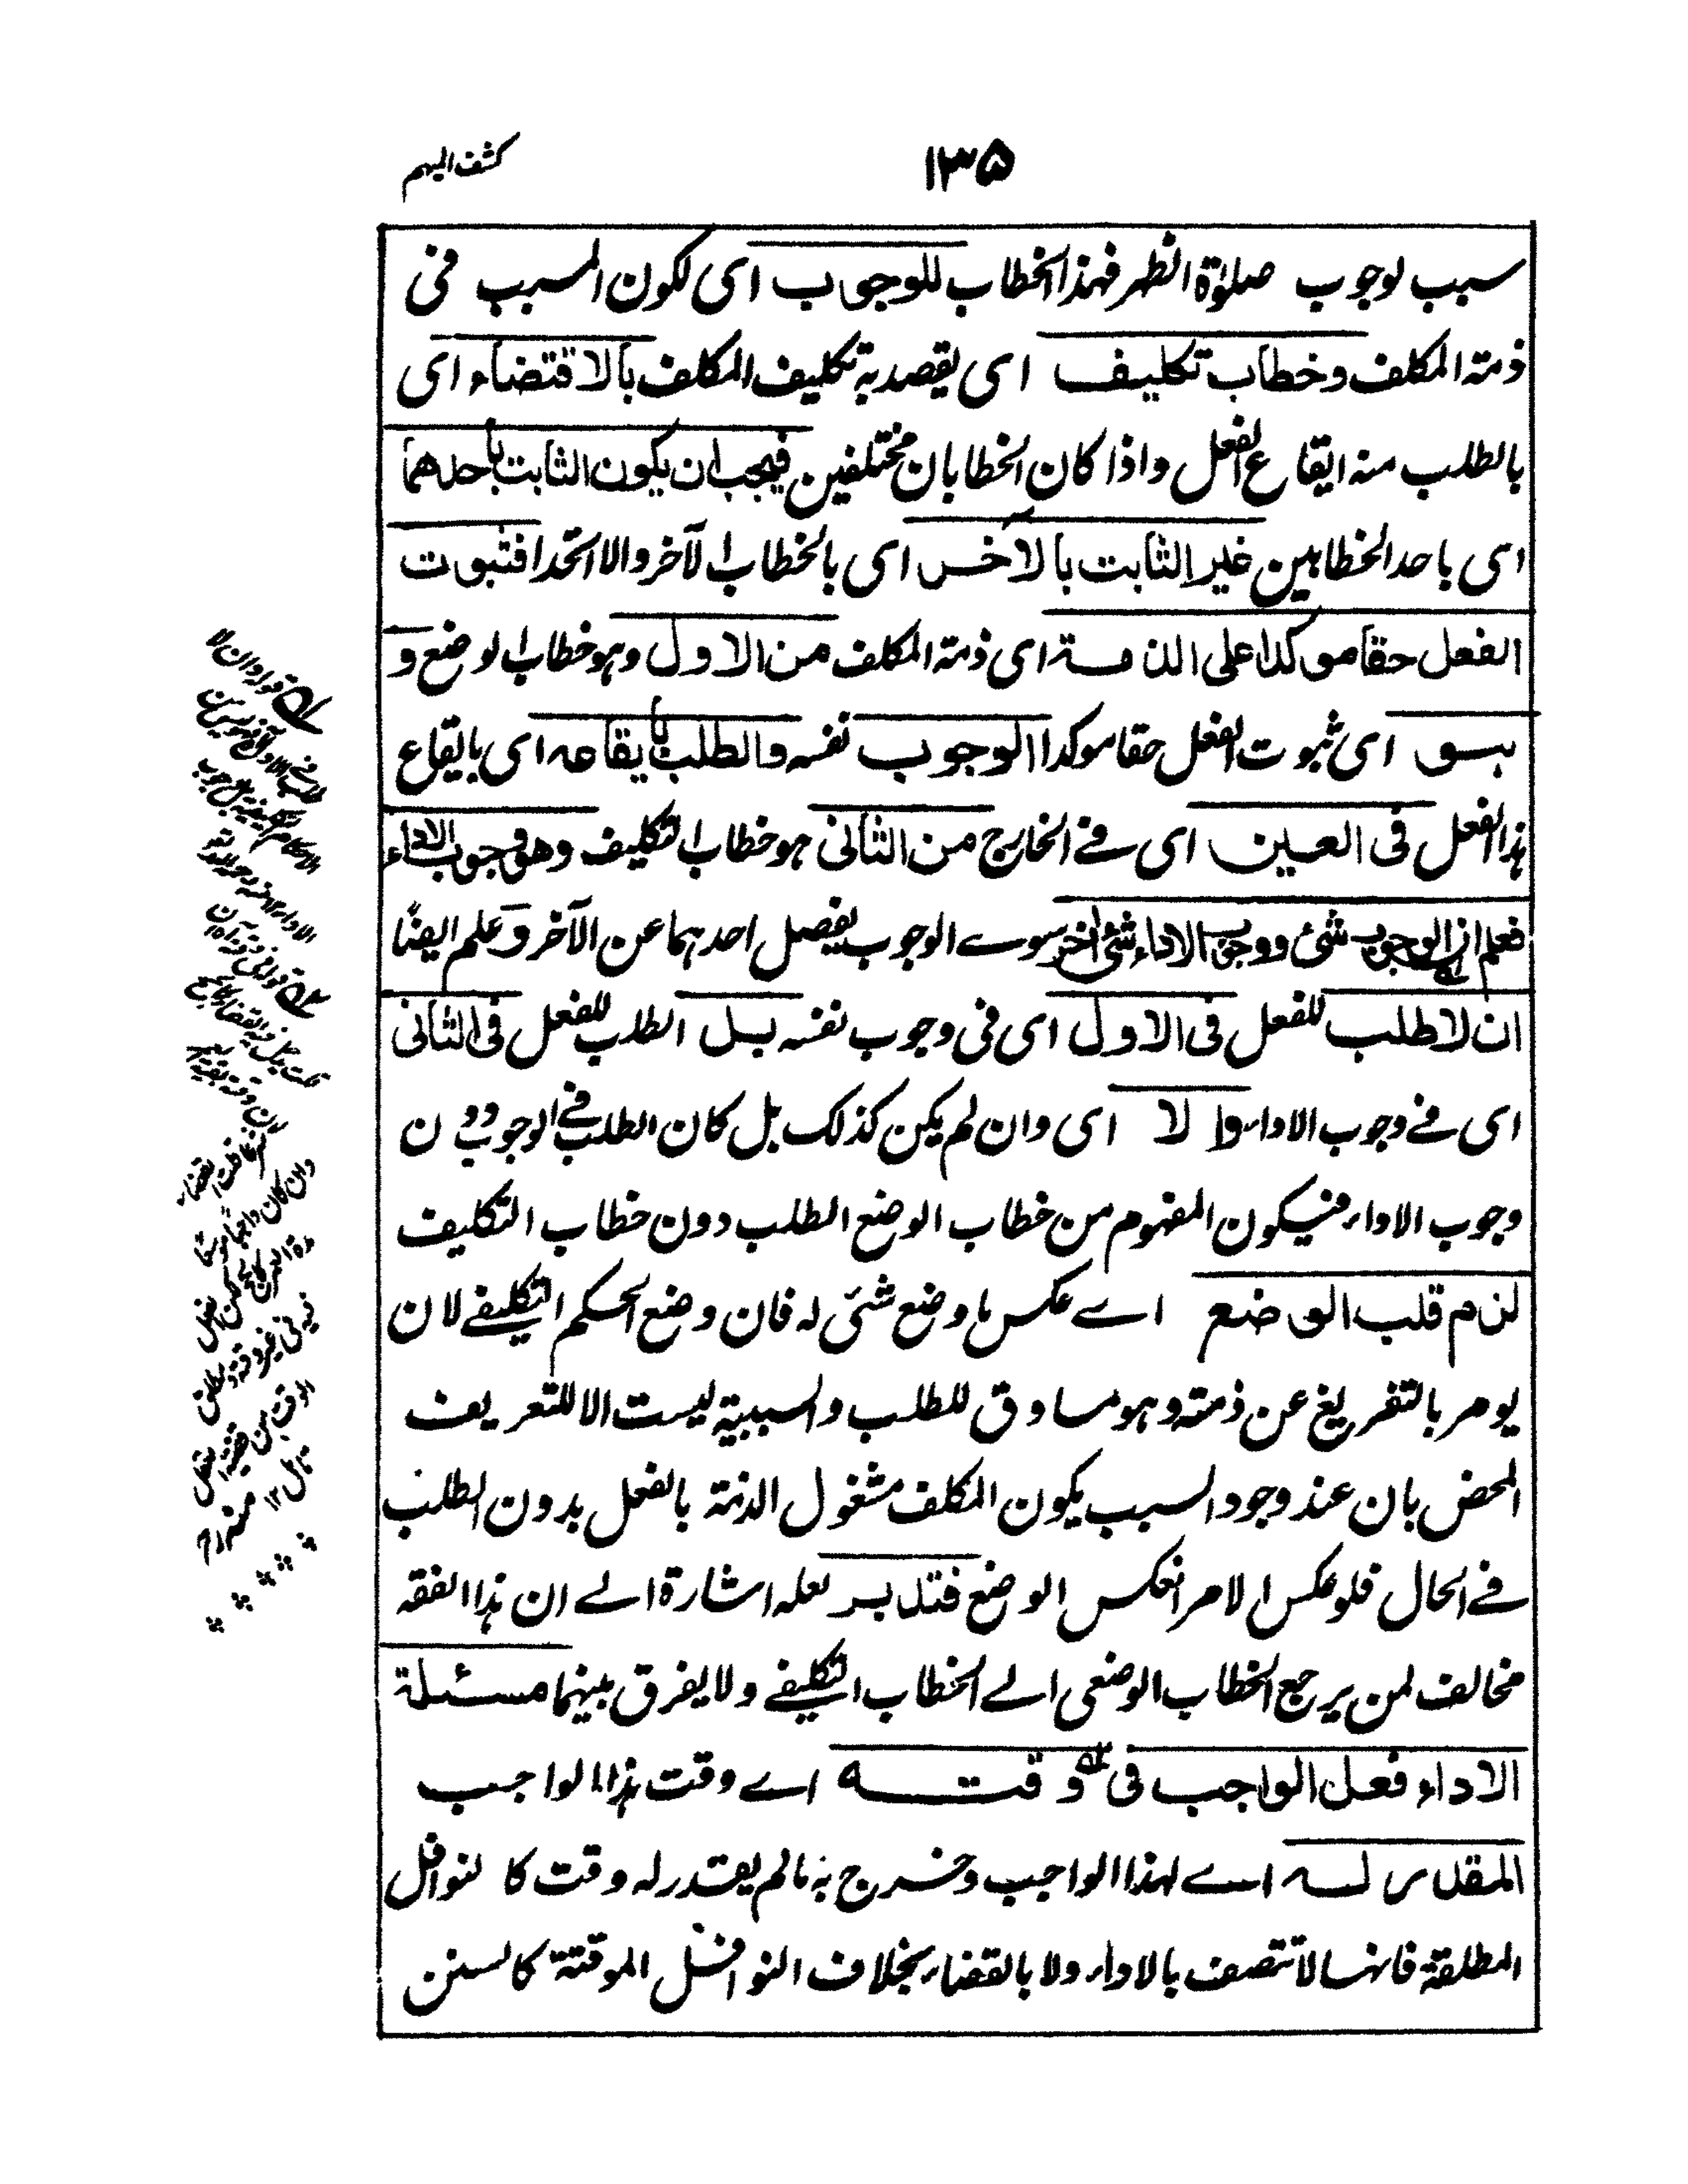 ١٣٥
كشف المبهم
سبب لوجوب صلوٰة الظهر فهذا الخطاب للوجوب اى لكون المسبب فى
ذمة المكلف وخطاب تكليف اى يقصد به تكليف المكلف بالاقتضاء اى
بالطلب منه ايقاع الفعل واذا كان الخطابان مختلفين فيجب ان يكون الثابت باحدهما
اى باحد الخطابين غير الثابت بالآخر اى بالخطاب الآخر والا اتحدا فثبوت
الفعل حقا موكدا على الذمة اى ذمة المكلف من الاول وهو خطاب الوضع و
هو اى ثبوت الفعل حقا موكدا الوجوب نفسه والطلب بايقاعه اى بايقاع
هذا الفعل فى العين اى فے الخارج من الثانى هو خطاب التكليف وهو وجوب الاداء
فعلم ان الوجوب شئ ووجوب الاداء شئ آخر سوے الوجوب يفصل احدهما عن الآخر وعلم ايضًا
ان لا طلب للفعل فى الاول اى فى وجوب نفسه بل الطلب للفعل فى الثانى
اى فے وجوب الاداء والا اى وان لم يكن كذلك بل كان الطلب فے الوجوب دون
وجوب الاداء فيكون المفهوم من خطاب الوضع الطلب دون خطاب التكليف
لزم قلب الوضع اے عكس ما وضع شئى له فان وضع الحكم التكليفے لان
يومر بالتفريغ عن ذمته وهو مساوق للطلب والسببية ليست الا للتعريف
المحض بان عند وجود السبب يكون المكلف مشغول الذمة بالفعل بدون الطلب
فے الحال فلو عكس الامر انعكس الوضع فتدبر لعله اشارة الے ان هذا الفقه
مخالف لمن يرجع الخطاب الوضعى الے الخطاب التكليفے ولا يفرق بينهما مسئلة
الاداء فعل الواجب فى وقته اے وقت هذا الواجب
المقدر له اے لهذا الواجب وخرج به ما لم يقدر له وقت كالنوافل
المطلقة فانها لا تتصف بالاداء ولا بالقضاء بخلاف النوافل الموقتة كالسنن